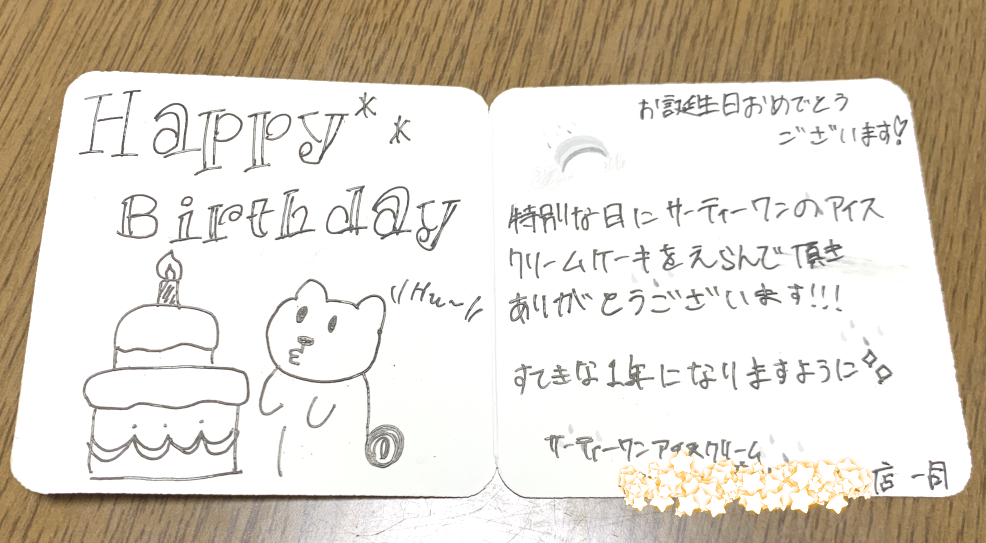 Happy
Birthday
Hu~
お誕生日おめでとう
ございます♡
特別な日にサーティーワンのアイス
クリームケーキをえらんで頂き
ありがとうございます!!!
すてきな1年になりますように
サーティーワンアイスクリーム
店一同